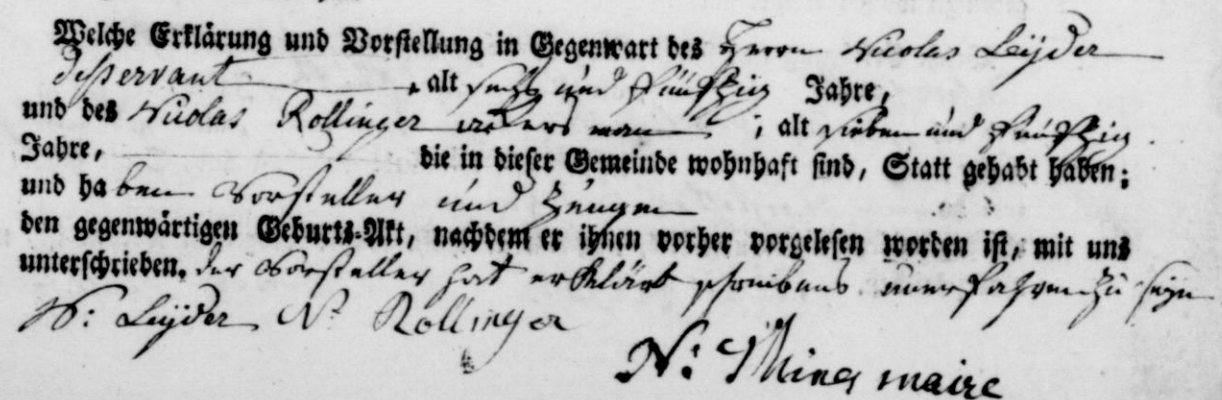 Welche Erklärung und Vorstellung in Gegenwart des Herrn Nicolas Leÿder
desservant, alt sechs und fünfzig Jahre,
und des Nicolas Rollinger ackersman; alt sieben und fünfzig
Jahre, die in dieser Gemeinde wohnhaft sind, Statt gehabt haben;
und haben Vorsteller und Zeugen
den gegenwärtigen Geburts-Akt, nachdem er ihnen vorher vorgelesen worden ist, mit uns
unterschrieben. der Vorsteller hat erklärt schreibens unerfahren zu seÿn
N: Leÿder Ns Rollinger
N: maire